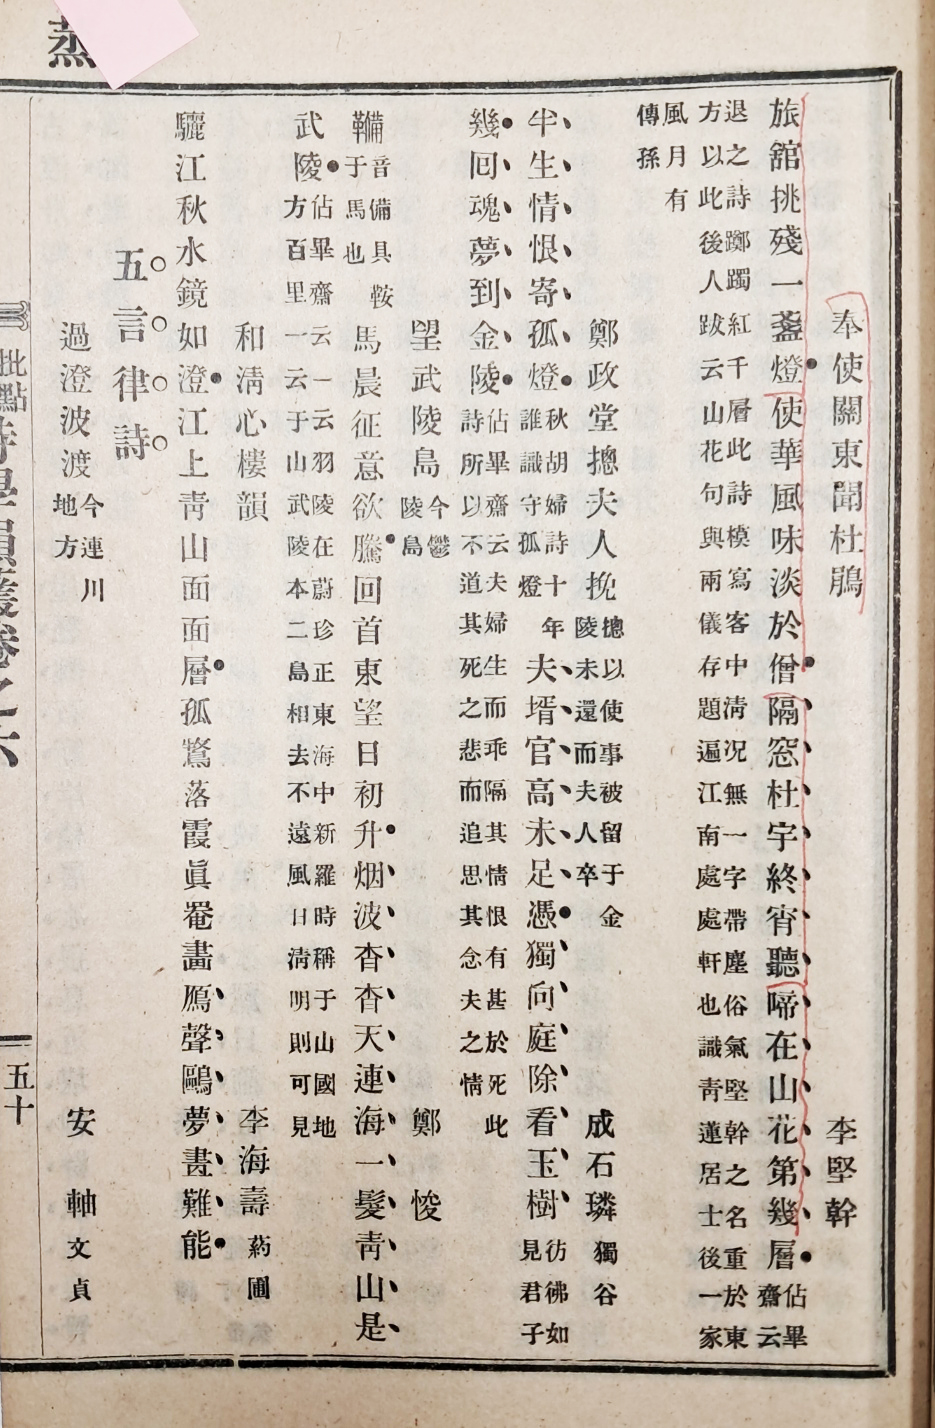 蒸
奉使關東聞杜鵑 李堅幹
旅舘挑殘一盞燈使華風味淡於僧隔窓杜宇終宵聽啼在山花第幾層 佔畢
齋云
退之詩躑躅紅千層此詩模寫客中淸况無一字帶塵俗氣堅幹之名重於東
方以此後人跋云山花句與兩儀存題遍江南處處軒也識靑蓮居士後一家
風月有
傳孫
鄭政堂摠夫人挽 摠以使事被留于金
陵未還而夫人卒 成石璘 獨谷
半生情恨寄孤燈 秋胡婦詩十年
誰識守孤燈 夫壻官高未足憑獨向庭除看玉樹 彷彿如
見君子
幾回魂夢到金陵 佔畢齋云夫婦生而乖隔其情恨有甚於死此
詩所以不道其死之悲而追思其念夫之情
望武陵島 今鬱
陵島 鄭悛
鞴 音備具鞍
于馬也 馬晨征意欲騰回首東望日初升烟波杳杳天連海一髮靑山是
武陵 佔畢齋云一云羽陵在蔚珍正東海中新羅時稱于山國地
方百里一云于山武陵本二島相去不遠風日淸明則可見
和淸心樓韻 李海壽 葯圃
驪江秋水鏡如澄江上靑山面面層孤鶩落霞眞罨畵鴈聲鷗夢畵難能
五言律詩
過澄波渡 今連川
地方 安軸 文貞
批點詩學韻叢卷之六 五十